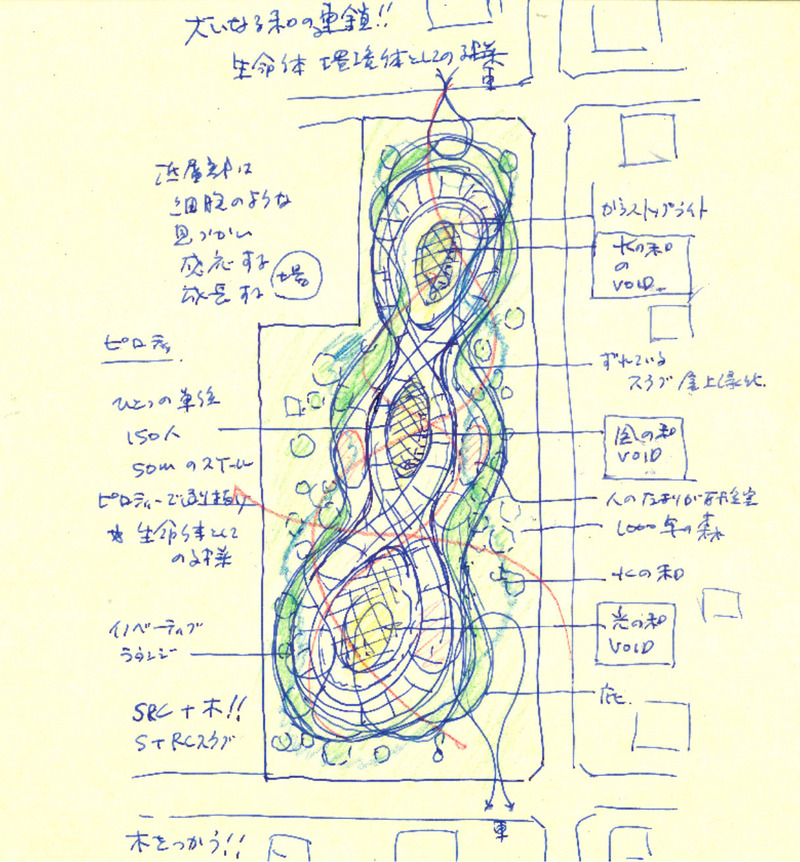 大いなる和の連鎖!!
生命体 環境体としての多様
車
浜屋部は
細胞のような
息づかい
感応する
成長する
場
ピロティ
ひとつの単位
150人
50mのスケール
ピロティーで通り抜け
生命体として
の多様
イノベーティブ
ラウンジ
SRC+木!!
S+RCスラブ
木をつかう!!
からストップライト
水の和
の
VOID
ずれている
スラブ屋上緑化
風の和
VOID
人のたまりが研究室
1000年の森
水の和
光の和
VOID
庇
車